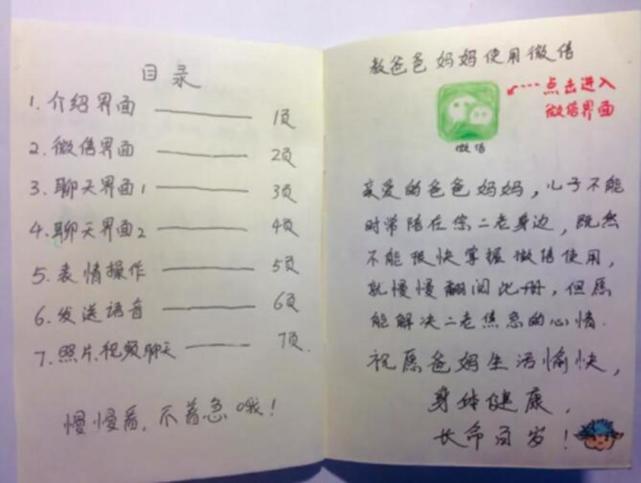 目录
1. 介绍界面 1页
2. 微信界面 2页
3. 聊天界面1 3页
4. 聊天界面2 4页
5. 表情操作 5页
6. 发送语音 6页
7. 照片、视频聊天 7页.
慢慢看,不着急哦!
教爸爸妈妈使用微信
点击进入
微信界面
微信
亲爱的爸爸妈妈,儿子不能
时常陪在您二老身边,既然
不能很快掌握微信使用,
就慢慢翻阅此册,但愿
能解决二老焦急的心情.
祝愿爸妈生活愉快,
身体健康,
长命百岁!